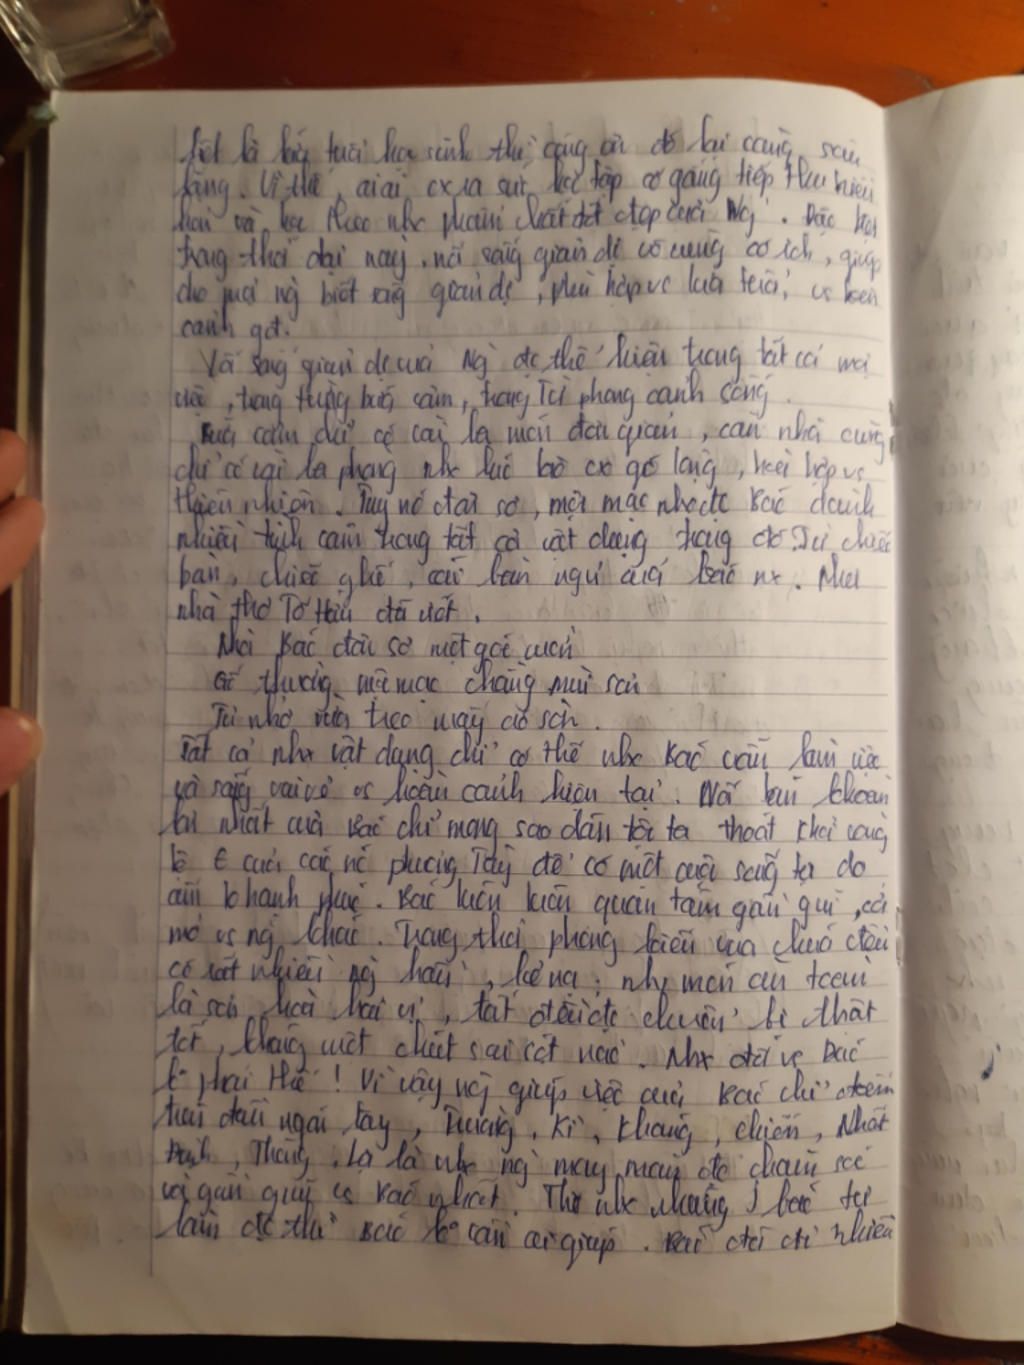 là lứa tuổi học sinh thì càng cần đó lại càng sâu
lắng. Vì thế, ai ai cx ra sức học tập cố gắng tiếp thu nhiều
hơn và học theo nhx phẩm chất tốt đẹp của Ng`. Đặc biệt
trong thời đại này, nối sống giản dị vô cùng có ích, giúp
cho mọi ng biết sống giản dị, phù hợp vs lứa tuổi, vs hoàn
cảnh
Vối sống giản dị của Ng` đc thể hiện trong tất cả mọi
việc, trong từng bữa cơm, trong phong cảnh sống.
Bữa cơm chỉ có là món đơn giản, căn nhà cũng
chỉ có phòng nhx lúc lộng, hoà hợp vs
thiên nhiên. Tuy nó đơn sơ, mộc mạc nhx đc Bác dành
nhiều tình cảm trong tất cả vật dụng trong đó. Từ chiếc
bàn, chiếc ghế, của Bác nx. Như
nhà thơ Tố Hữu đã viết.
Nhà Bác đơn sơ một góc vườn
Gỗ thường mộc mạc chẳng mùi sơn
Tủ nhỏ vừa treo mấy áo sờn.
Tất cả nhx vật dụng chỉ có thế nhx Bác vẫn làm việc
và sống vui vẻ vs hoàn cảnh hiện tại. Nỗi băn khoăn
lớn nhất của Bác chỉ mong sao dân tộc ta thoát khỏi
của các nc phương Tây để có một cuộc sống tự do
ấm no hạnh phúc. Bác luôn luôn quan tâm gần gũi, cởi
mở vs ng khác. Trong thời phong kiến vua chúa đều
có rất nhiều ng hầu, nhx món ăn toàn
là sơn hào hải vị, tất đều đc chuẩn bị thật
tốt, không một chút sai sót nào. Nhx đối vs Bác
k phải thế! Vì vậy ng giúp việc của Bác chỉ đếm
trên đầu ngón tay, Trường, Kì, Kháng, Chiến, Nhất
Định, Thắng. Là là nhx ng may mắn đc chăm sóc
và gần gũi vs Bác nhất. Thế nhx những j bác tự
làm đc thì Bác k cần ai giúp. Bác đã đi nhiều